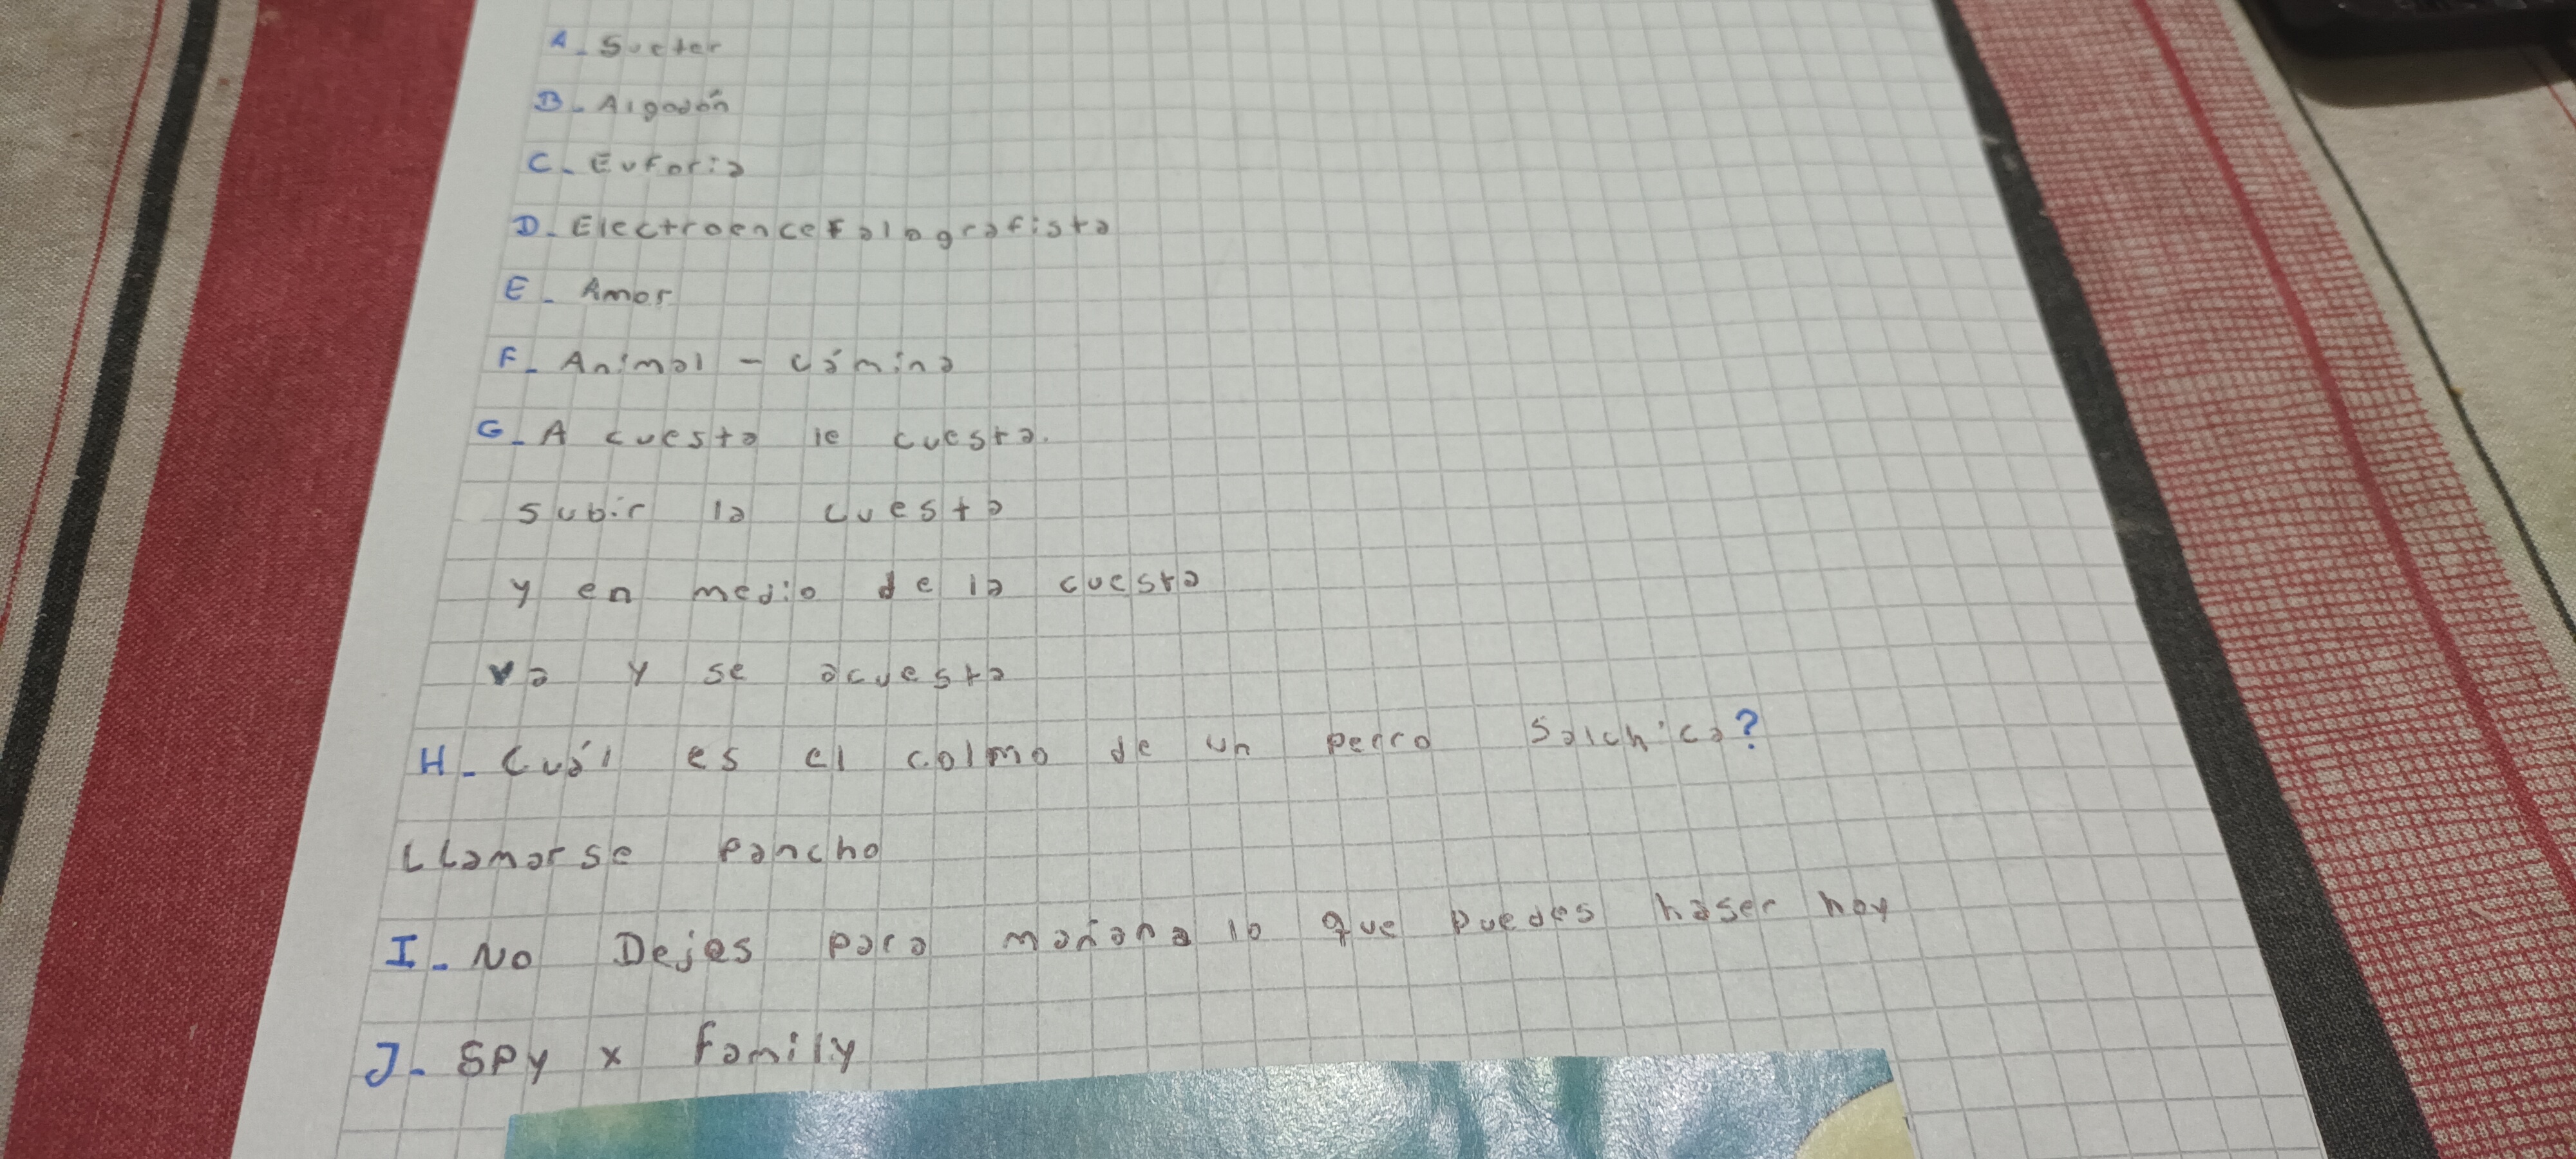 A. Sueter
B. Algodón
C. Euforia
D. Electroencefalografista
E. Amor
F. Animal - cámina
G. A cuesta le cuesta.
subir la cuesta
y en medio de la cuesta
va y se acuesta
H. Cuál es el colmo de un perro Salchica?
LLamarse Pancho
I. No Dejes para mañana lo que puedes haser hoy
J. Spy x family